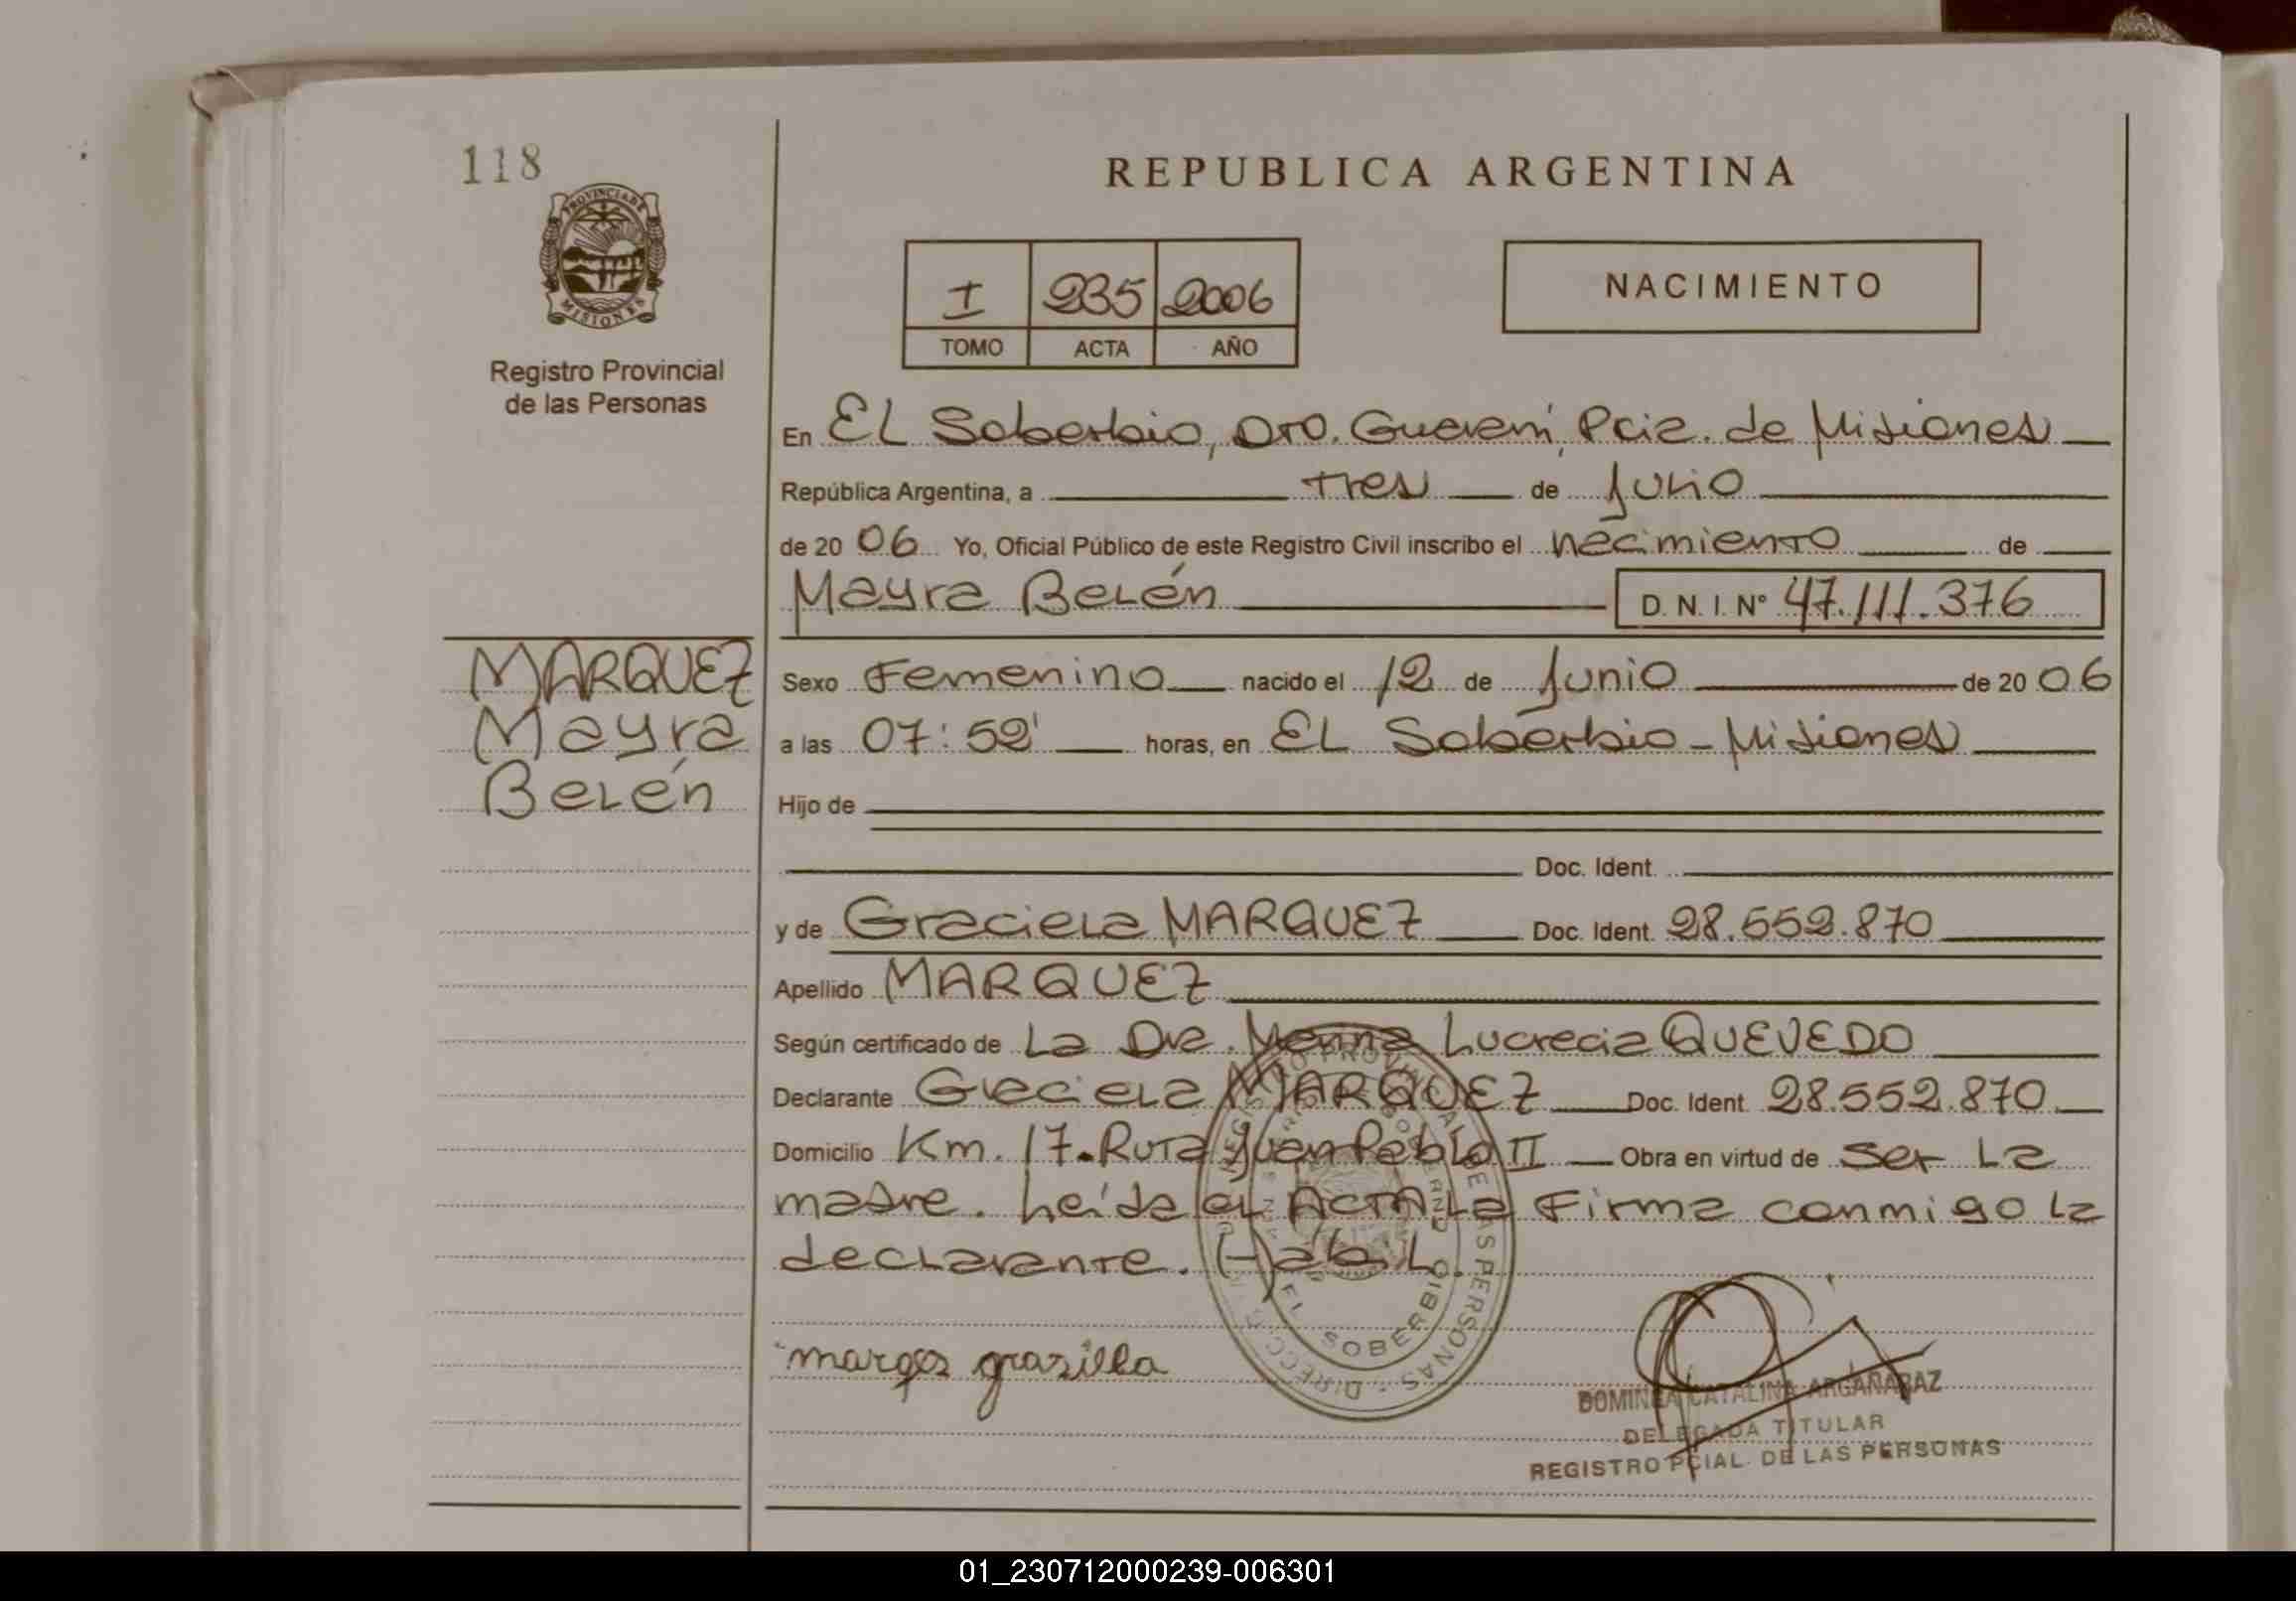 118
PROVINCIA DE
MISIONES
Registro Provincial
de las Personas
REPUBLICA ARGENTINA
I 235 2006
TOMO ACTA AÑO
NACIMIENTO
En EL Soberbio, Dto. Guaraní, Pcia. de Misiones
República Argentina, a tres de Julio
de 20 06 Yo, Oficial Público de este Registro Civil inscribo el nacimiento de
Mayra Belén D. N. I. Nº 47.111.376
MARQUEZ
Mayra
Belén
Sexo Femenino nacido el 12 de Junio de 20 06
a las 07:52' horas, en EL Soberbio - Misiones
Hijo de
Doc. Ident.
y de Graciela MARQUEZ Doc. Ident. 28.552.870
Apellido MARQUEZ
Según certificado de La Dra. Lucrecia QUEVEDO
Declarante Graciela MARQUEZ Doc. Ident. 28.552.870
Domicilio Km. 17. Ruta Juan Pablo II Obra en virtud de ser La
madre. Leída el Acta La Firma conmigo La
declarante. Habil.
EL SOBERBIO
marqes grasilla
DOMINGA CATALINA ARGAÑARAZ
DELEGADA TITULAR
REGISTRO PCIAL. DE LAS PERSONAS
01_230712000239-006301